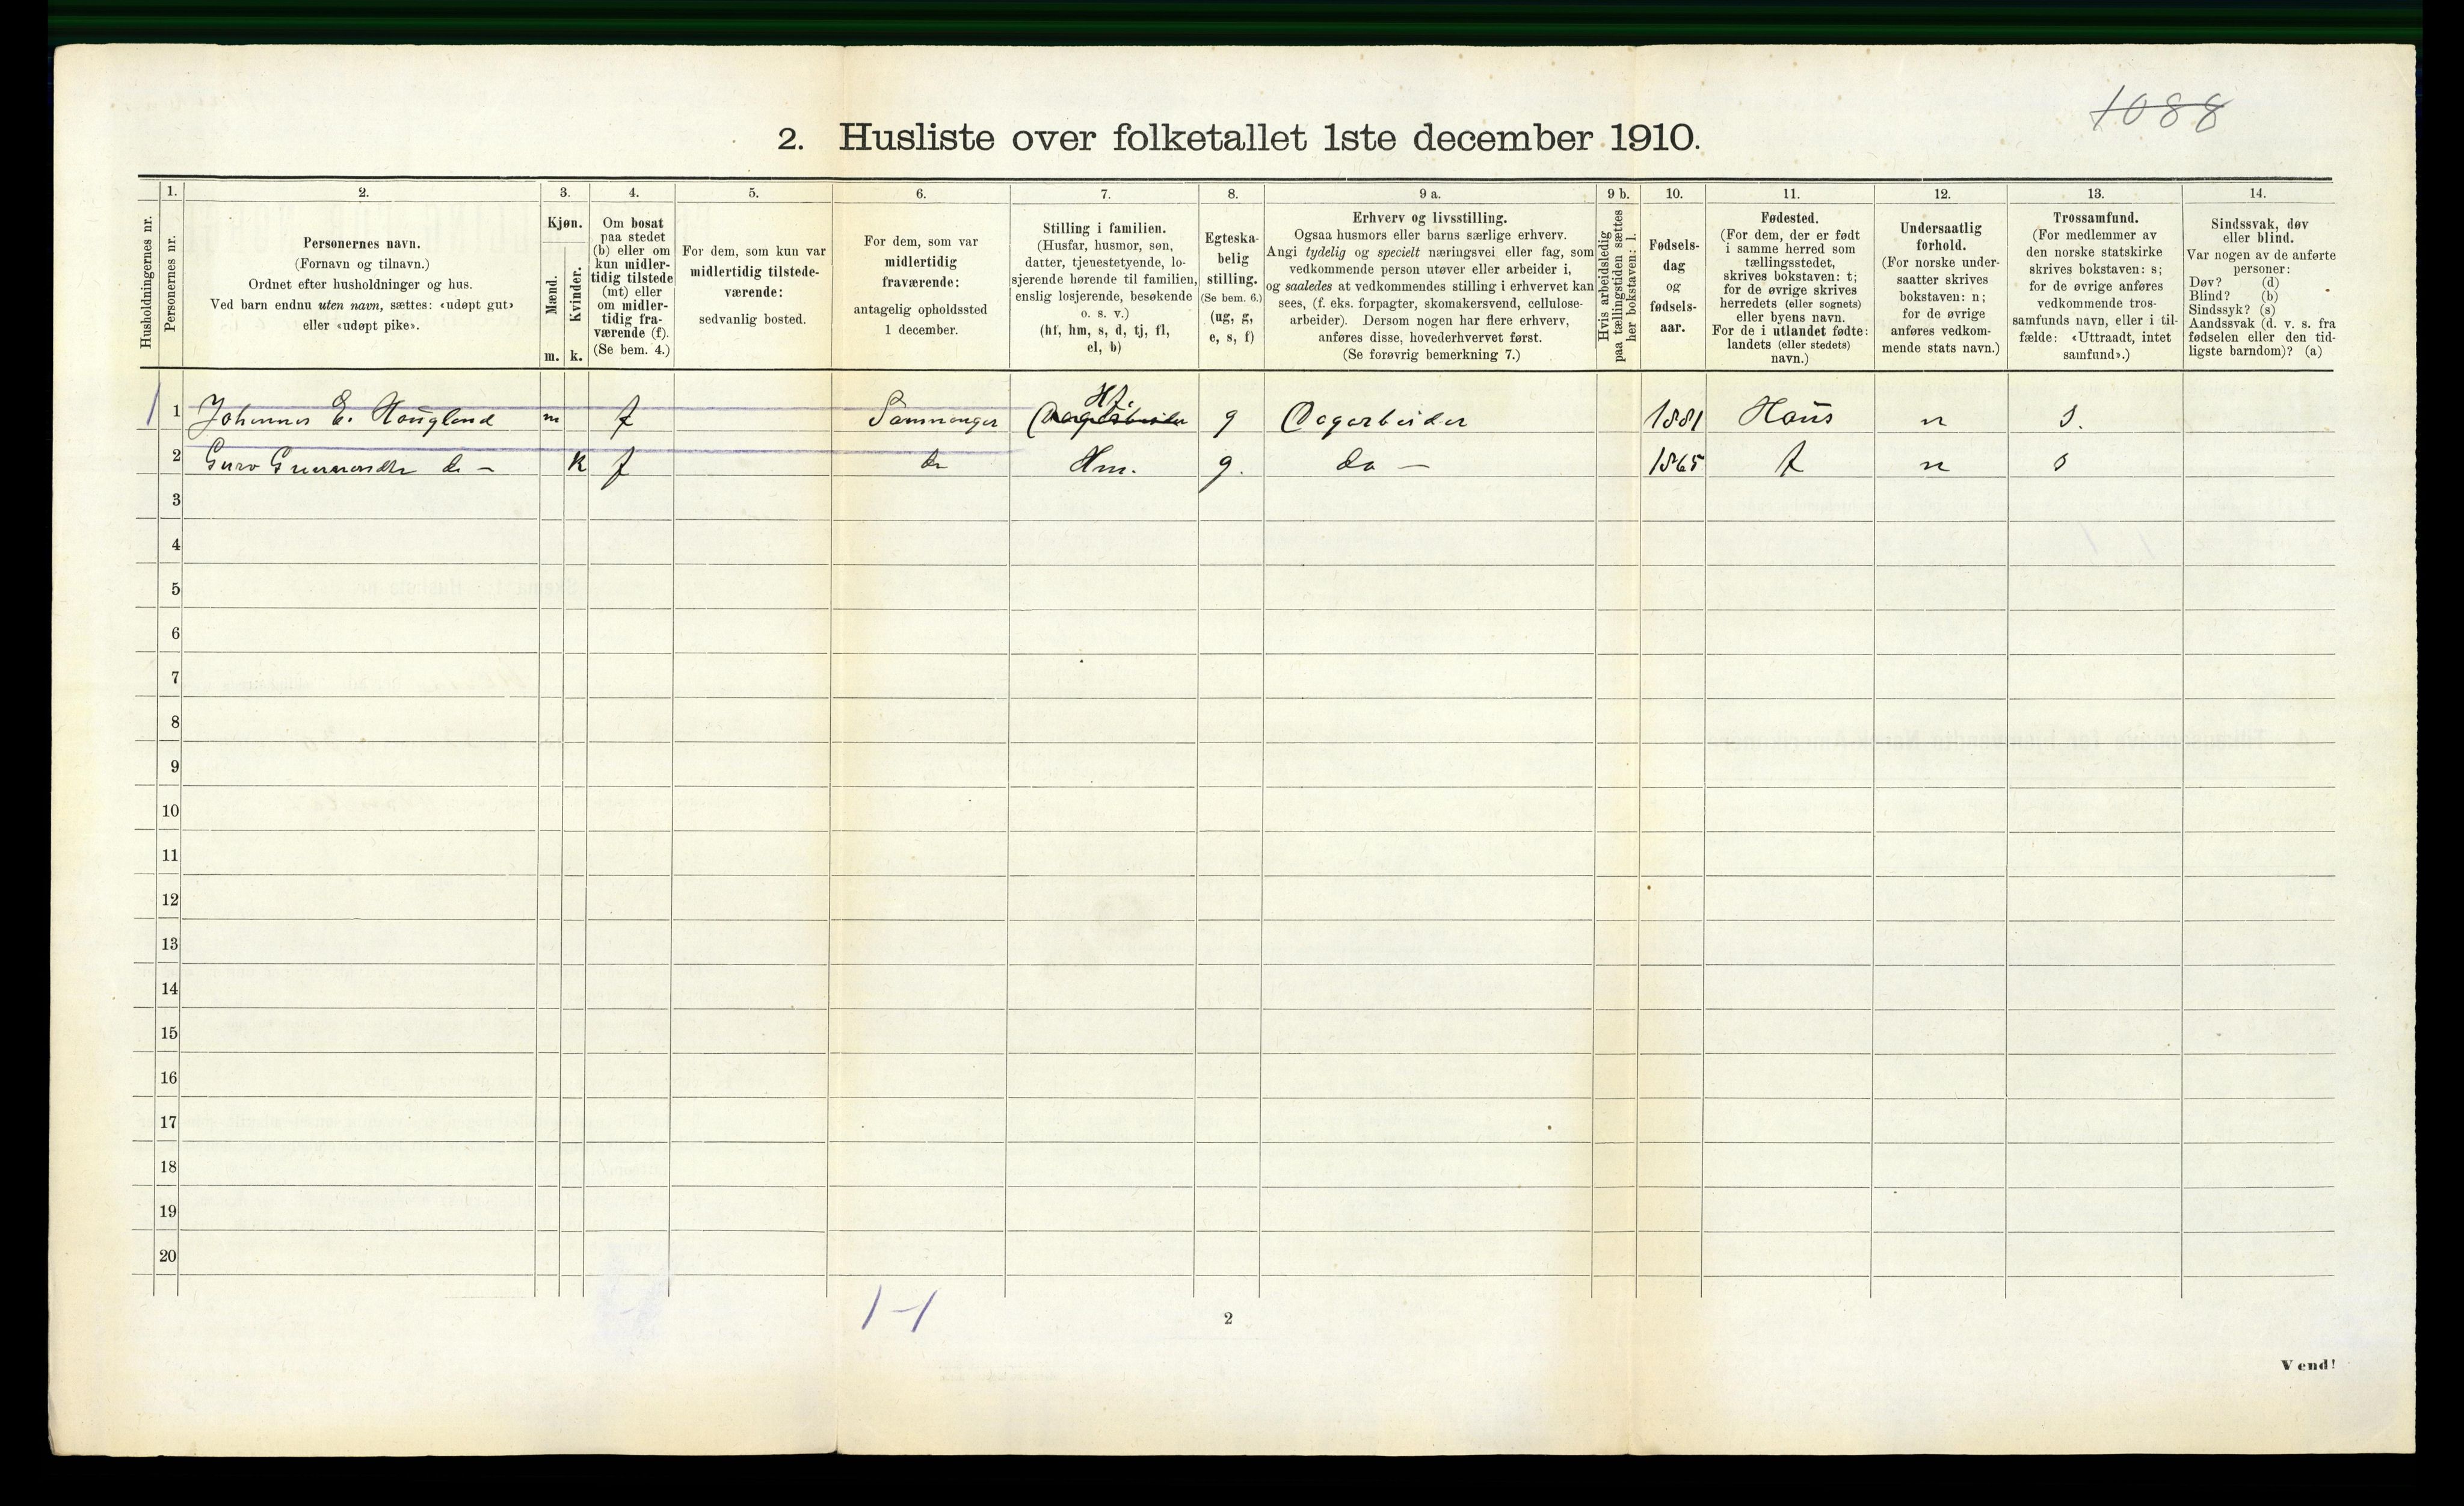 1088
2. Husliste over folketallet 1ste december 1910.
Husholdningernes nr.
1.
Personernes nr.
2.
Personernes navn.
(Fornavn og tilnavn.)
Ordnet efter husholdninger og hus.
Ved barn endnu uten navn, sættes: «udøpt gut»
eller «udøpt pike».
3.
Kjøn.
Mænd.
m.
Kvinder.
k.
4.
Om bosat
paa stedet
(b) eller om
kun midler-
tidig tilstede
(mt) eller
om midler-
tidig fra-
værende (f).
(Se bem. 4.)
5.
For dem, som kun var
midlertidig tilstede-
værende:
sedvanlig bosted.
6.
For dem, som var
midlertidig
fraværende:
antagelig opholdssted
1 december.
7.
Stilling i familien.
(Husfar, husmor, søn,
datter, tjenestetyende, lo-
sjerende hørende til familien,
enslig losjerende, besøkende
o. s. v.)
(hf, hm, s, d, tj, fl,
el, b)
8.
Egteska-
belig
stilling.
(Se bem. 6.)
(ug, g,
e, s, f)
9 a.
Erhverv og livsstilling.
Ogsaa husmors eller barns særlige erhverv.
Angi tydelig og specielt næringsvei eller fag, som
vedkommende person utøver eller arbeider i,
og saaledes at vedkommendes stilling i erhvervet kan
sees, (f. eks. forpagter, skomakersvend, cellulose-
arbeider). Dersom nogen har flere erhverv,
anføres disse, hovederhvervet først.
(Se forøvrig bemerkning 7.)
9 b.
Hvis arbeidsledig
paa tællingstiden sættes
her bokstaven: l.
10.
Fødsels-
dag
og
fødsels-
aar.
11.
Fødested.
(For dem, der er født
i samme herred som
tællingsstedet,
skrives bokstaven: t;
for de øvrige skrives
herredets (eller sognets)
eller byens navn.
For de i utlandet fødte:
landets (eller stedets)
navn.)
12.
Undersaatlig
forhold.
(For norske under-
saatter skrives
bokstaven: n;
for de øvrige
anføres vedkom-
mende stats navn.)
13.
Trossamfund.
(For medlemmer av
den norske statskirke
skrives bokstaven: s;
for de øvrige anføres
vedkommende tros-
samfunds navn, eller i til-
fælde: «Uttraadt, intet
samfund».)
14.
Sindssvak, døv
eller blind.
Var nogen av de anførte
personer:
Døv? (d)
Blind? (b)
Sindssyk? (s)
Aandssvak (d. v. s. fra
fødselen eller den tid-
ligste barndom)? (a)
1 1 Johannes E. Haugland m f Samnanger Hf. g Dagarbeider 1881 Haus n s.
2 Guro do - k f do Hm. g. do - 1865 t n s
3
4
5
6
7
8
9
10
11
12
13
14
15
16
17
18
19
20
1-1
2
Vend!